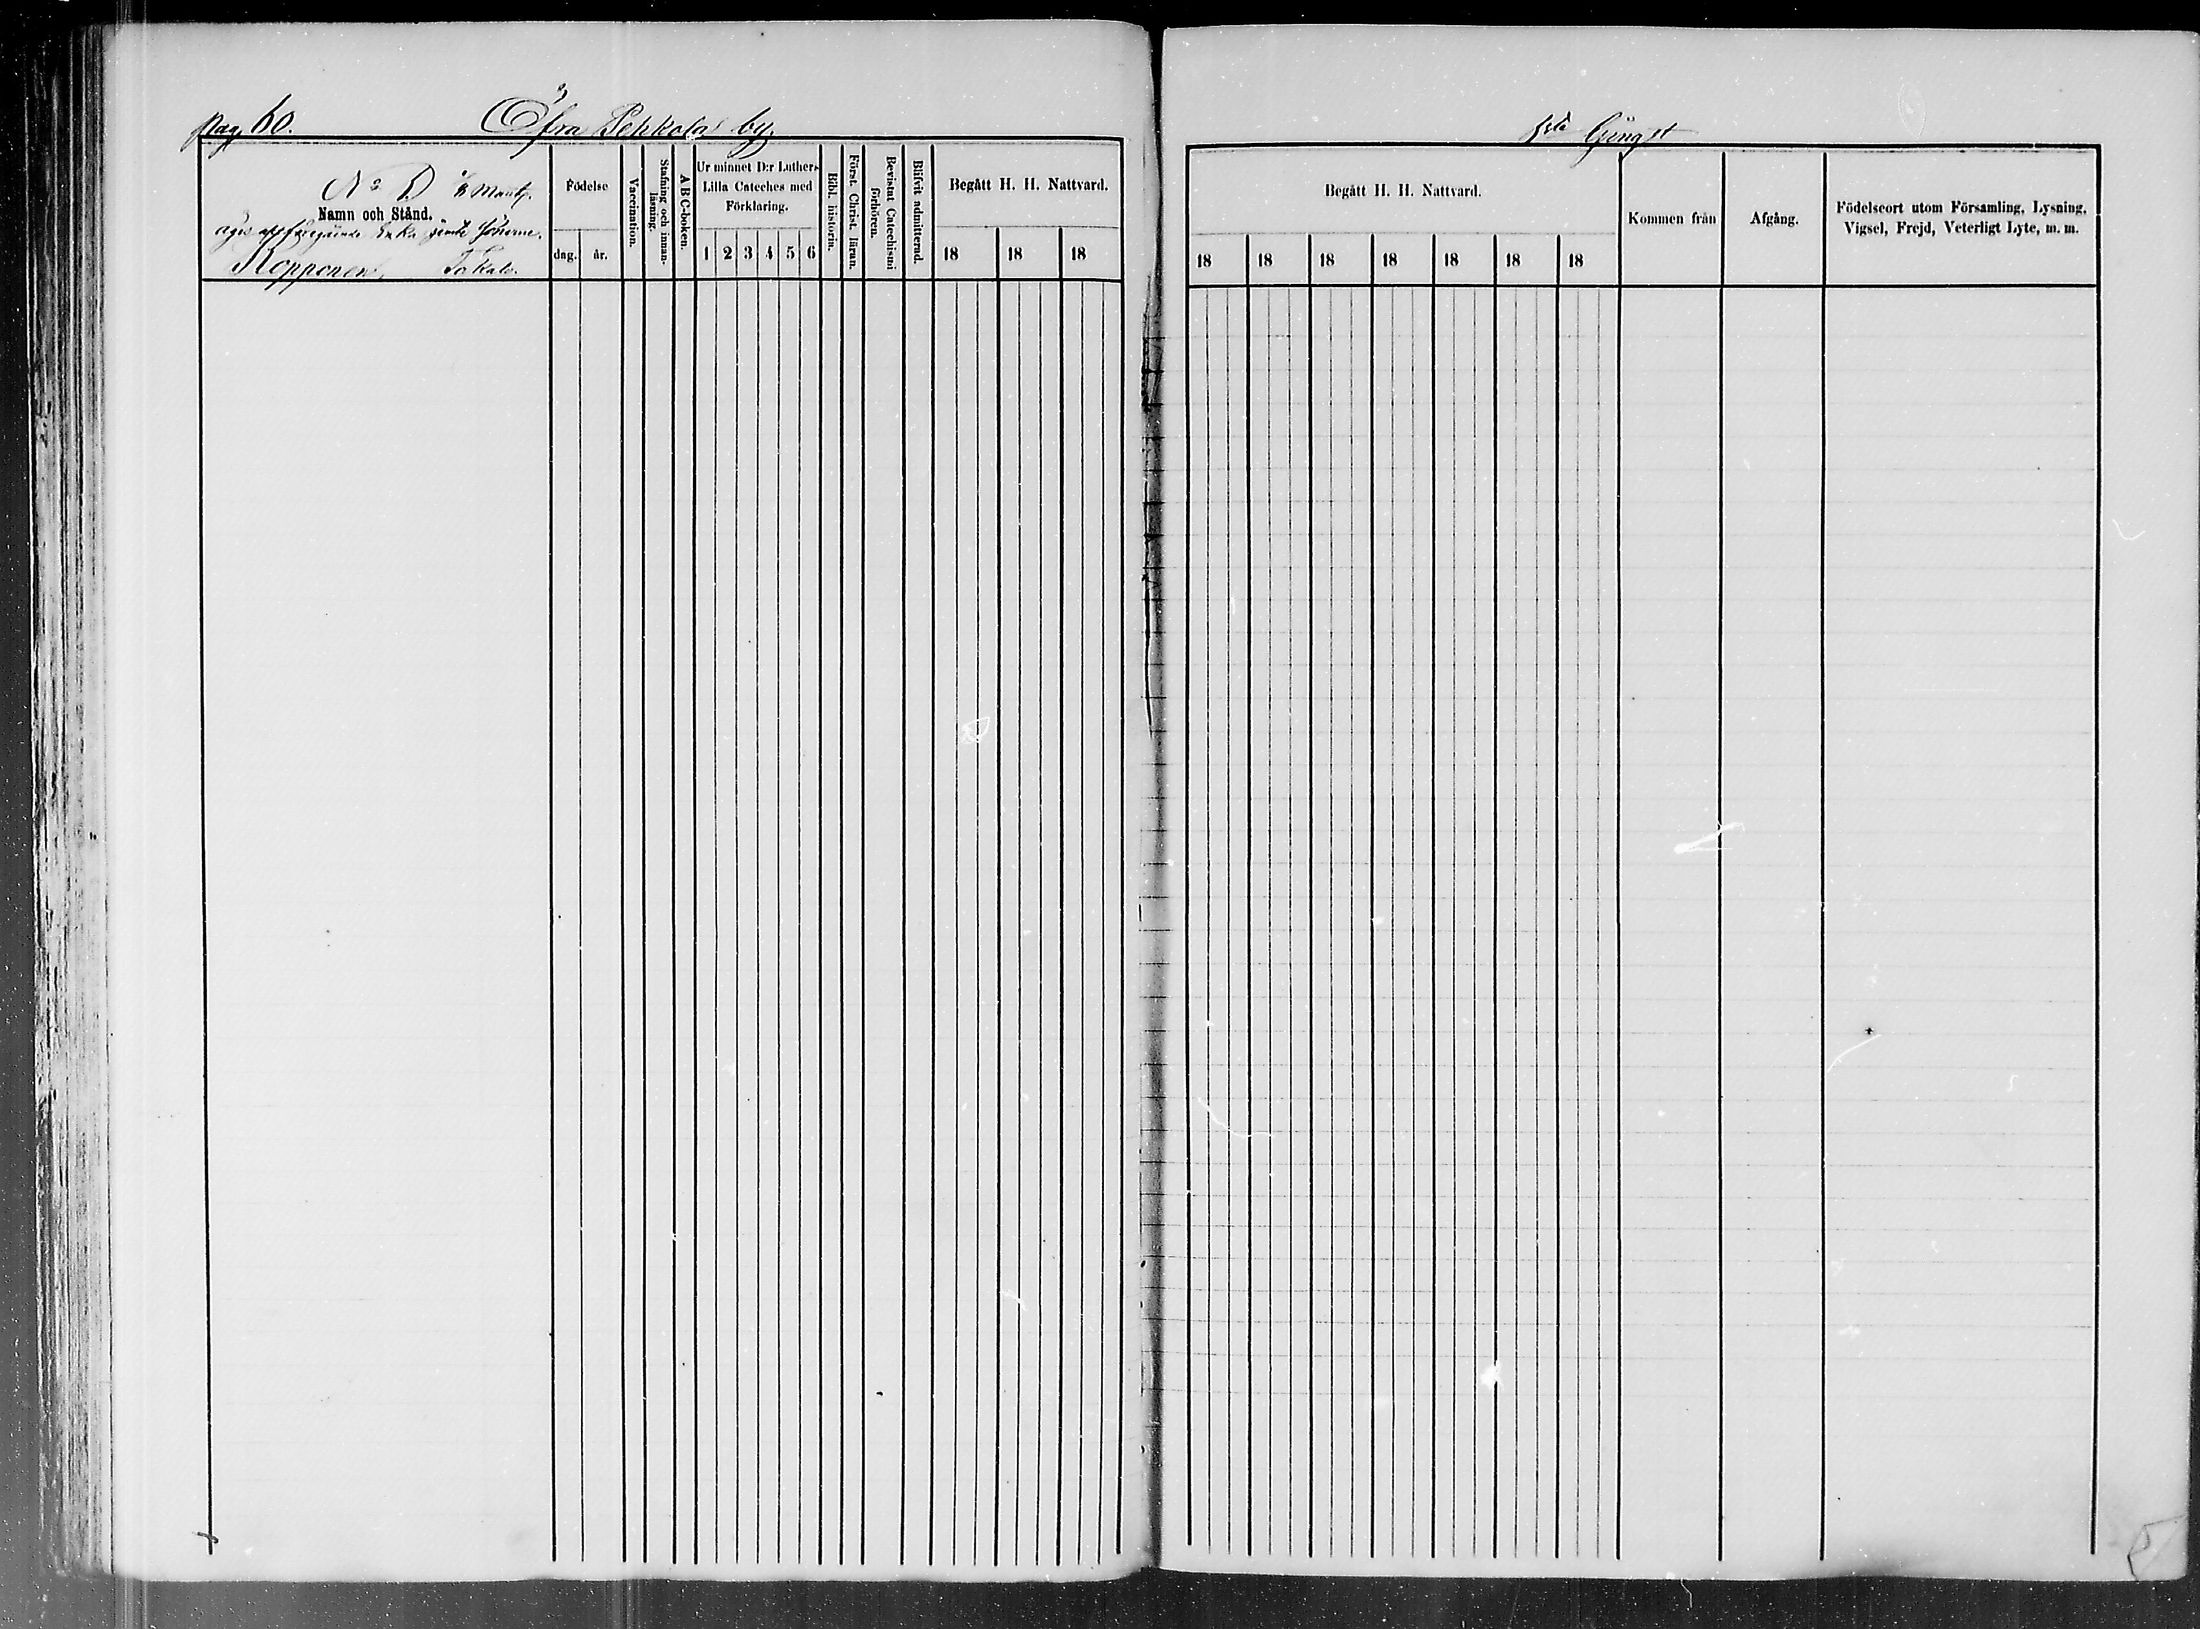 pag. 60. Öfra Pehkola by.
N:o 5 1/8 Mantl.
Namn och Stånd.
Kopponen,
Födelse
dag. år.
Vaccination.
Stafning och innanläsning.
A B C-boken.
Ur minnet D:r Luthers
Lilla Cateches med
Förklaring.
1 2 3 4 5 6
Bibl. historin.
Först. Christ. läran.
Bevistat Catechismi förhören.
Blifvit admitterad.
Begått H. H. Nattvard.
18 18 18
Begått H. H. Nattvard.
18 18 18 18 18 18 18
Kommen från
Afgång.
Födelseort utom Församling, Lysning,
Vigsel, Frejd, Veterligt Lyte, m. m.